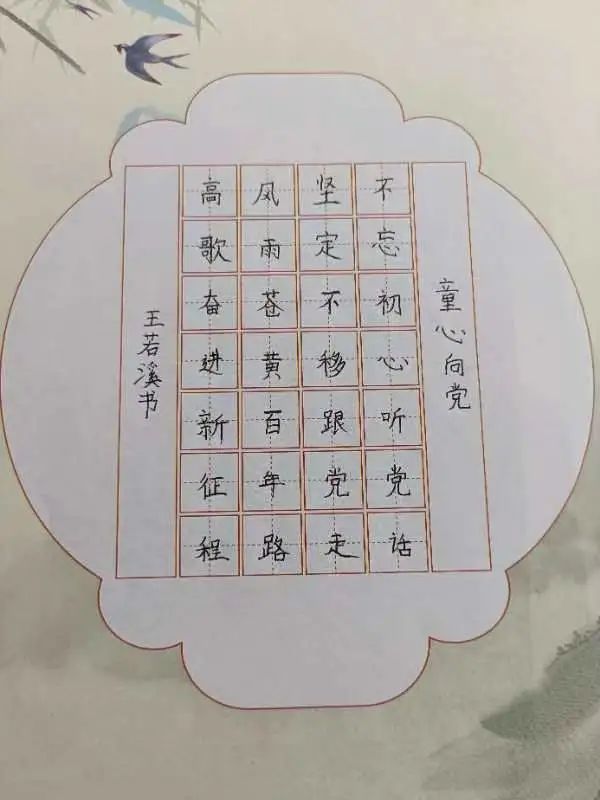 童心向党
不忘初心听党话
坚定不移跟党走
风雨苍黄百年路
高歌奋进新征程
王若溪书